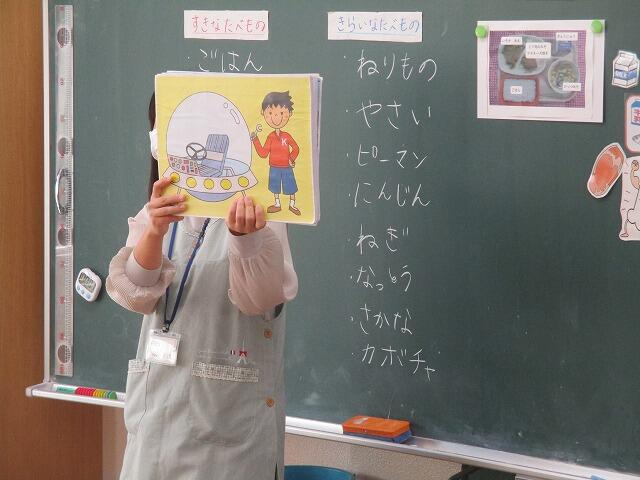 すきなたべもの
・ごはん
きらいなたべもの
・ねりもの
・やさい
・ピーマン
・にんじん
・ねぎ
・なっとう
・さかな
・カボチャ
K